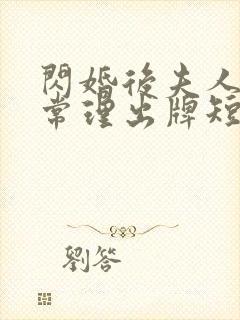 閃婚後夫人
常理出牌短
劉答